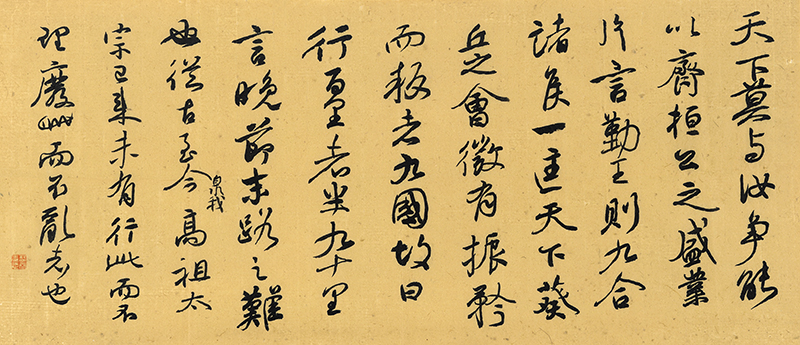 天下莫与汝争能
以齊桓公之盛業
片言勤王則九合
諸侯一匡天下葵
丘之會微有振矜
而叛者九國故曰
行百里者半九十里
言晚節末路之難
也從古至今臮我高祖太
宗已来未有行此而不
理廢此而不亂者也